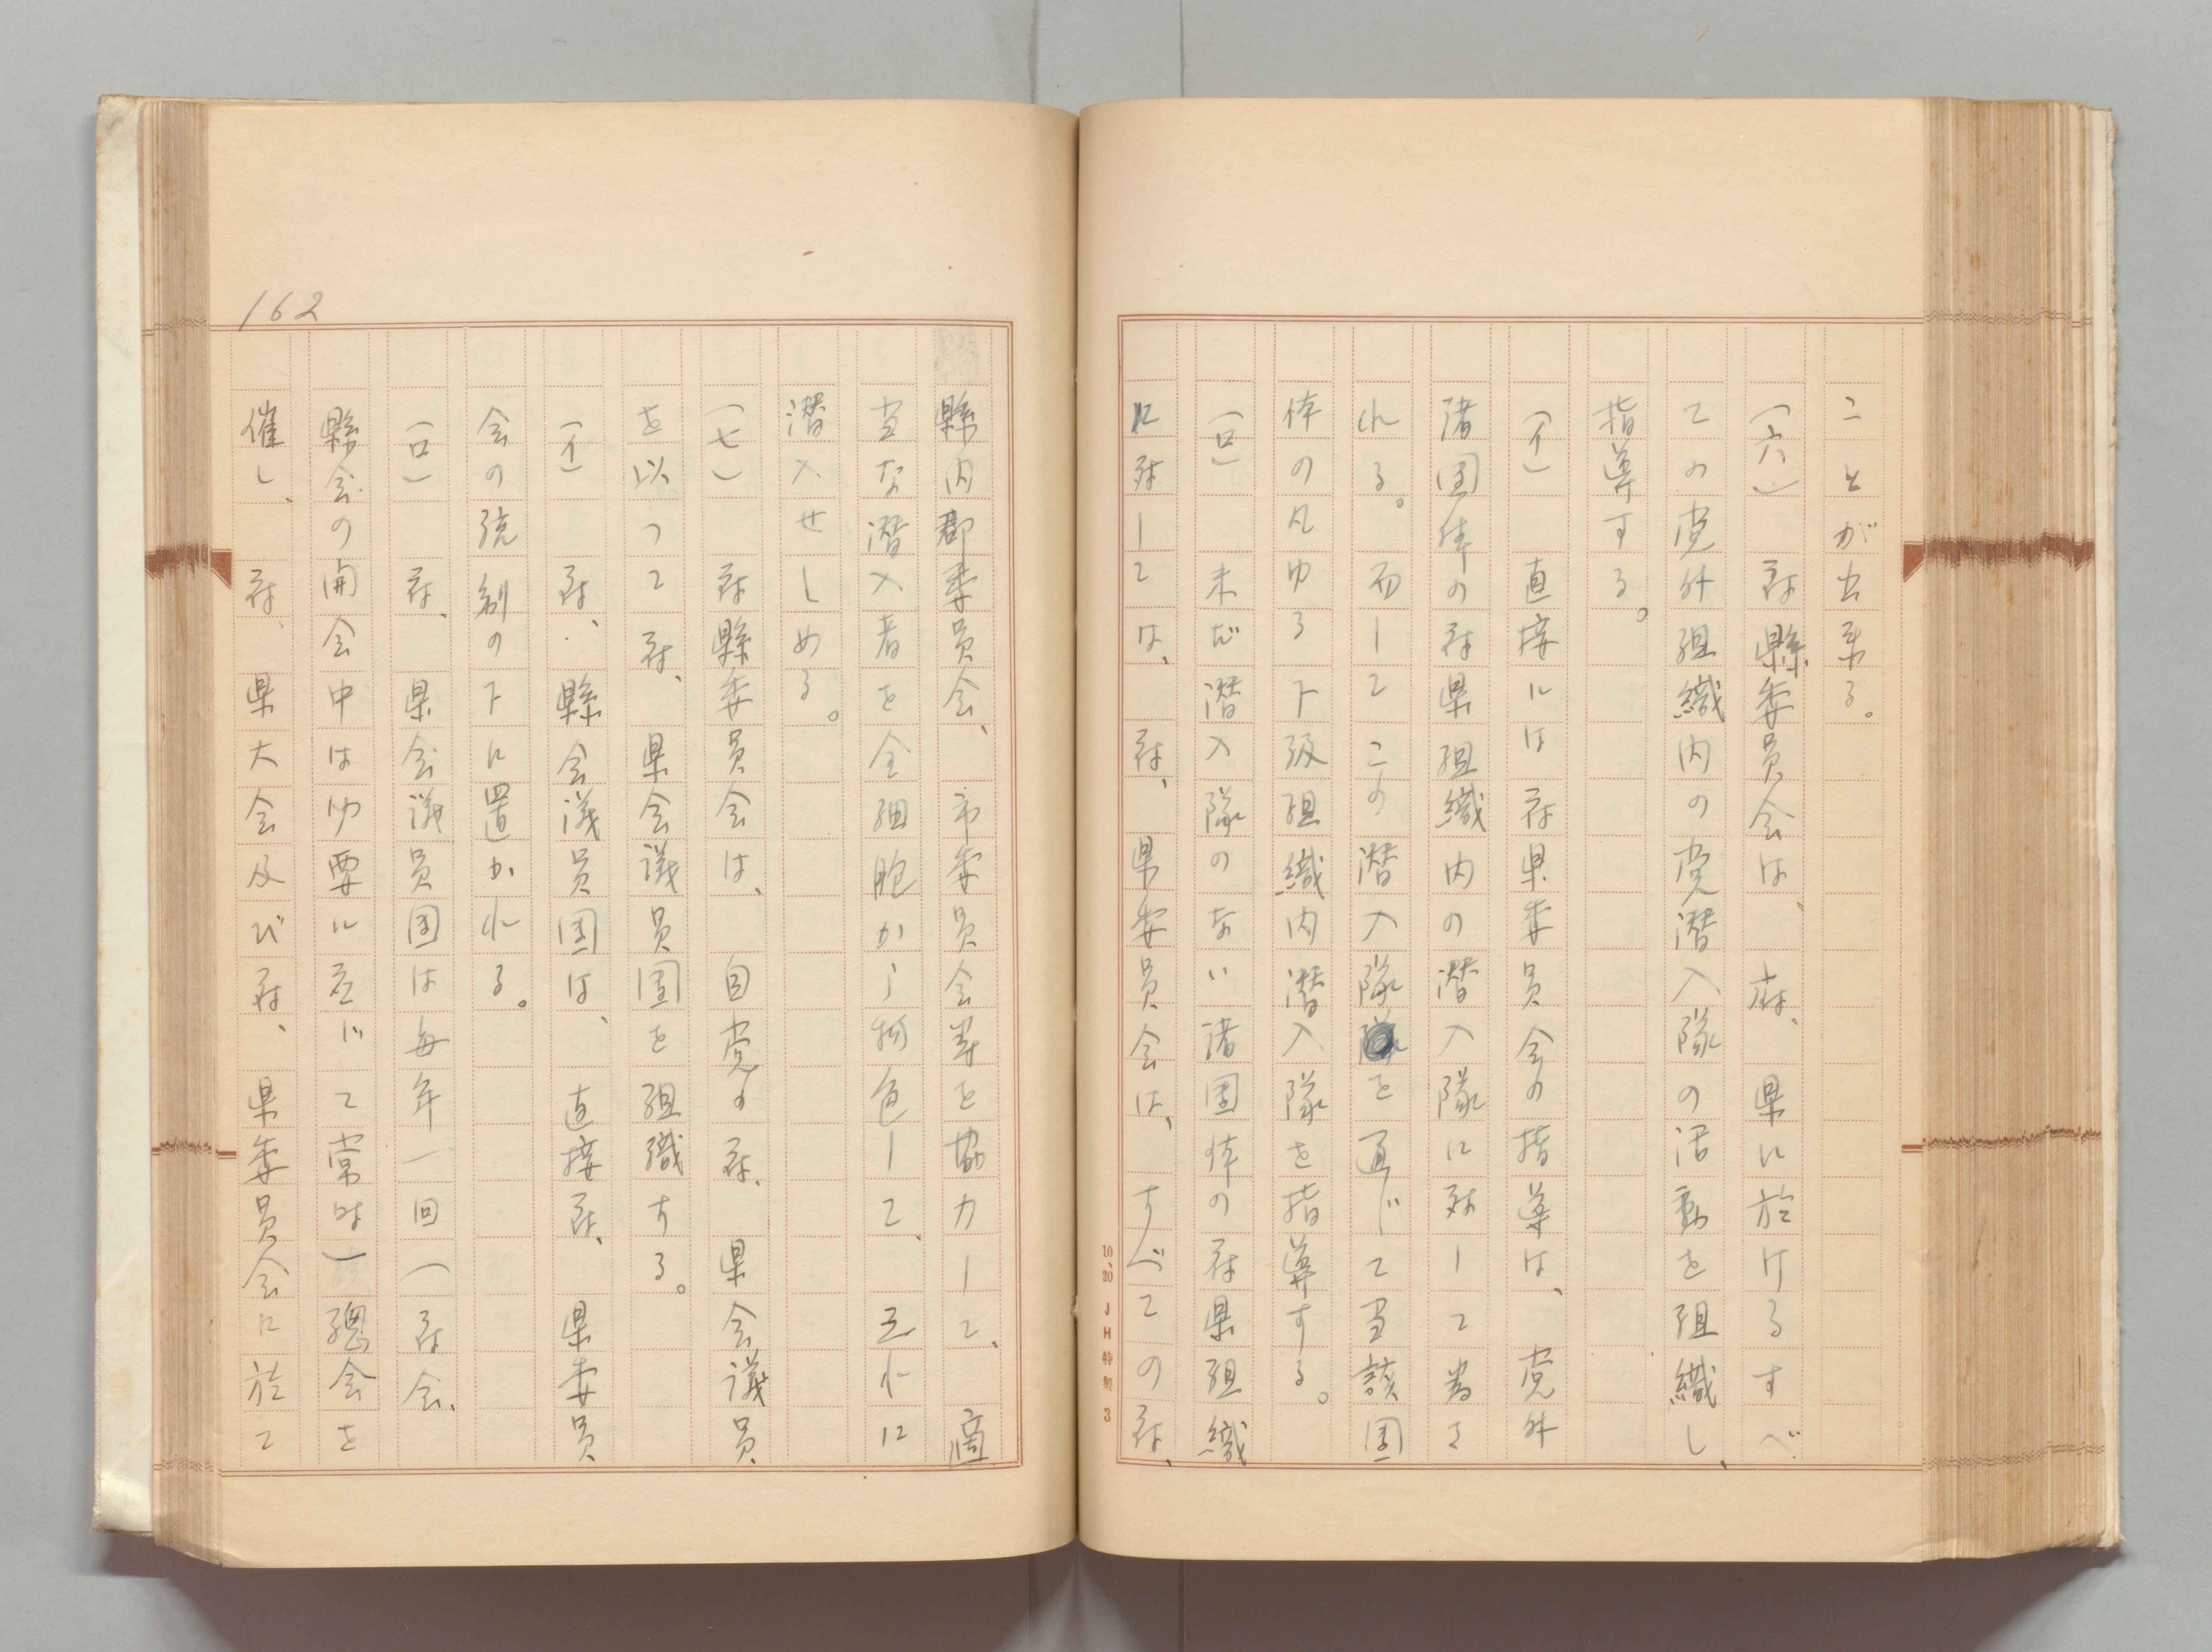 ことが出来る。
(六) 府縣委員会は、府、県に於けるすべ
ての党外組織内の党潜入隊の活動を組織し、
指導する。
(イ) 直接には府県委員会の指導は、党外
諸団体の府県組織内の潜入隊に対して為さ
れる。而してこの潜入隊を通じて当該団
体の凡ゆる下級組織内潜入隊を指導する。
(ロ) 未だ潜入隊のない諸団体の府県組織
に対しては、府、県委員会は、すべての府、
縣内郡委員会、市委員会等と協力して、適
当な潜入者を全細胞から物色して、之れに
潜入せしめる。
(七) 府縣委員会は、自党の府、県会議員
を以って府、県会議員団を組織する。
(イ) 府、縣会議員団は、直接府、県委員
会の統制の下に置かれる。
(ロ) 府、県会議員団は毎年一回(府会、
縣会の開会中は必要に応じて常時)總会を
催し、府、県大会及び府、県委員会に於て
162
10、20 JH特製 3